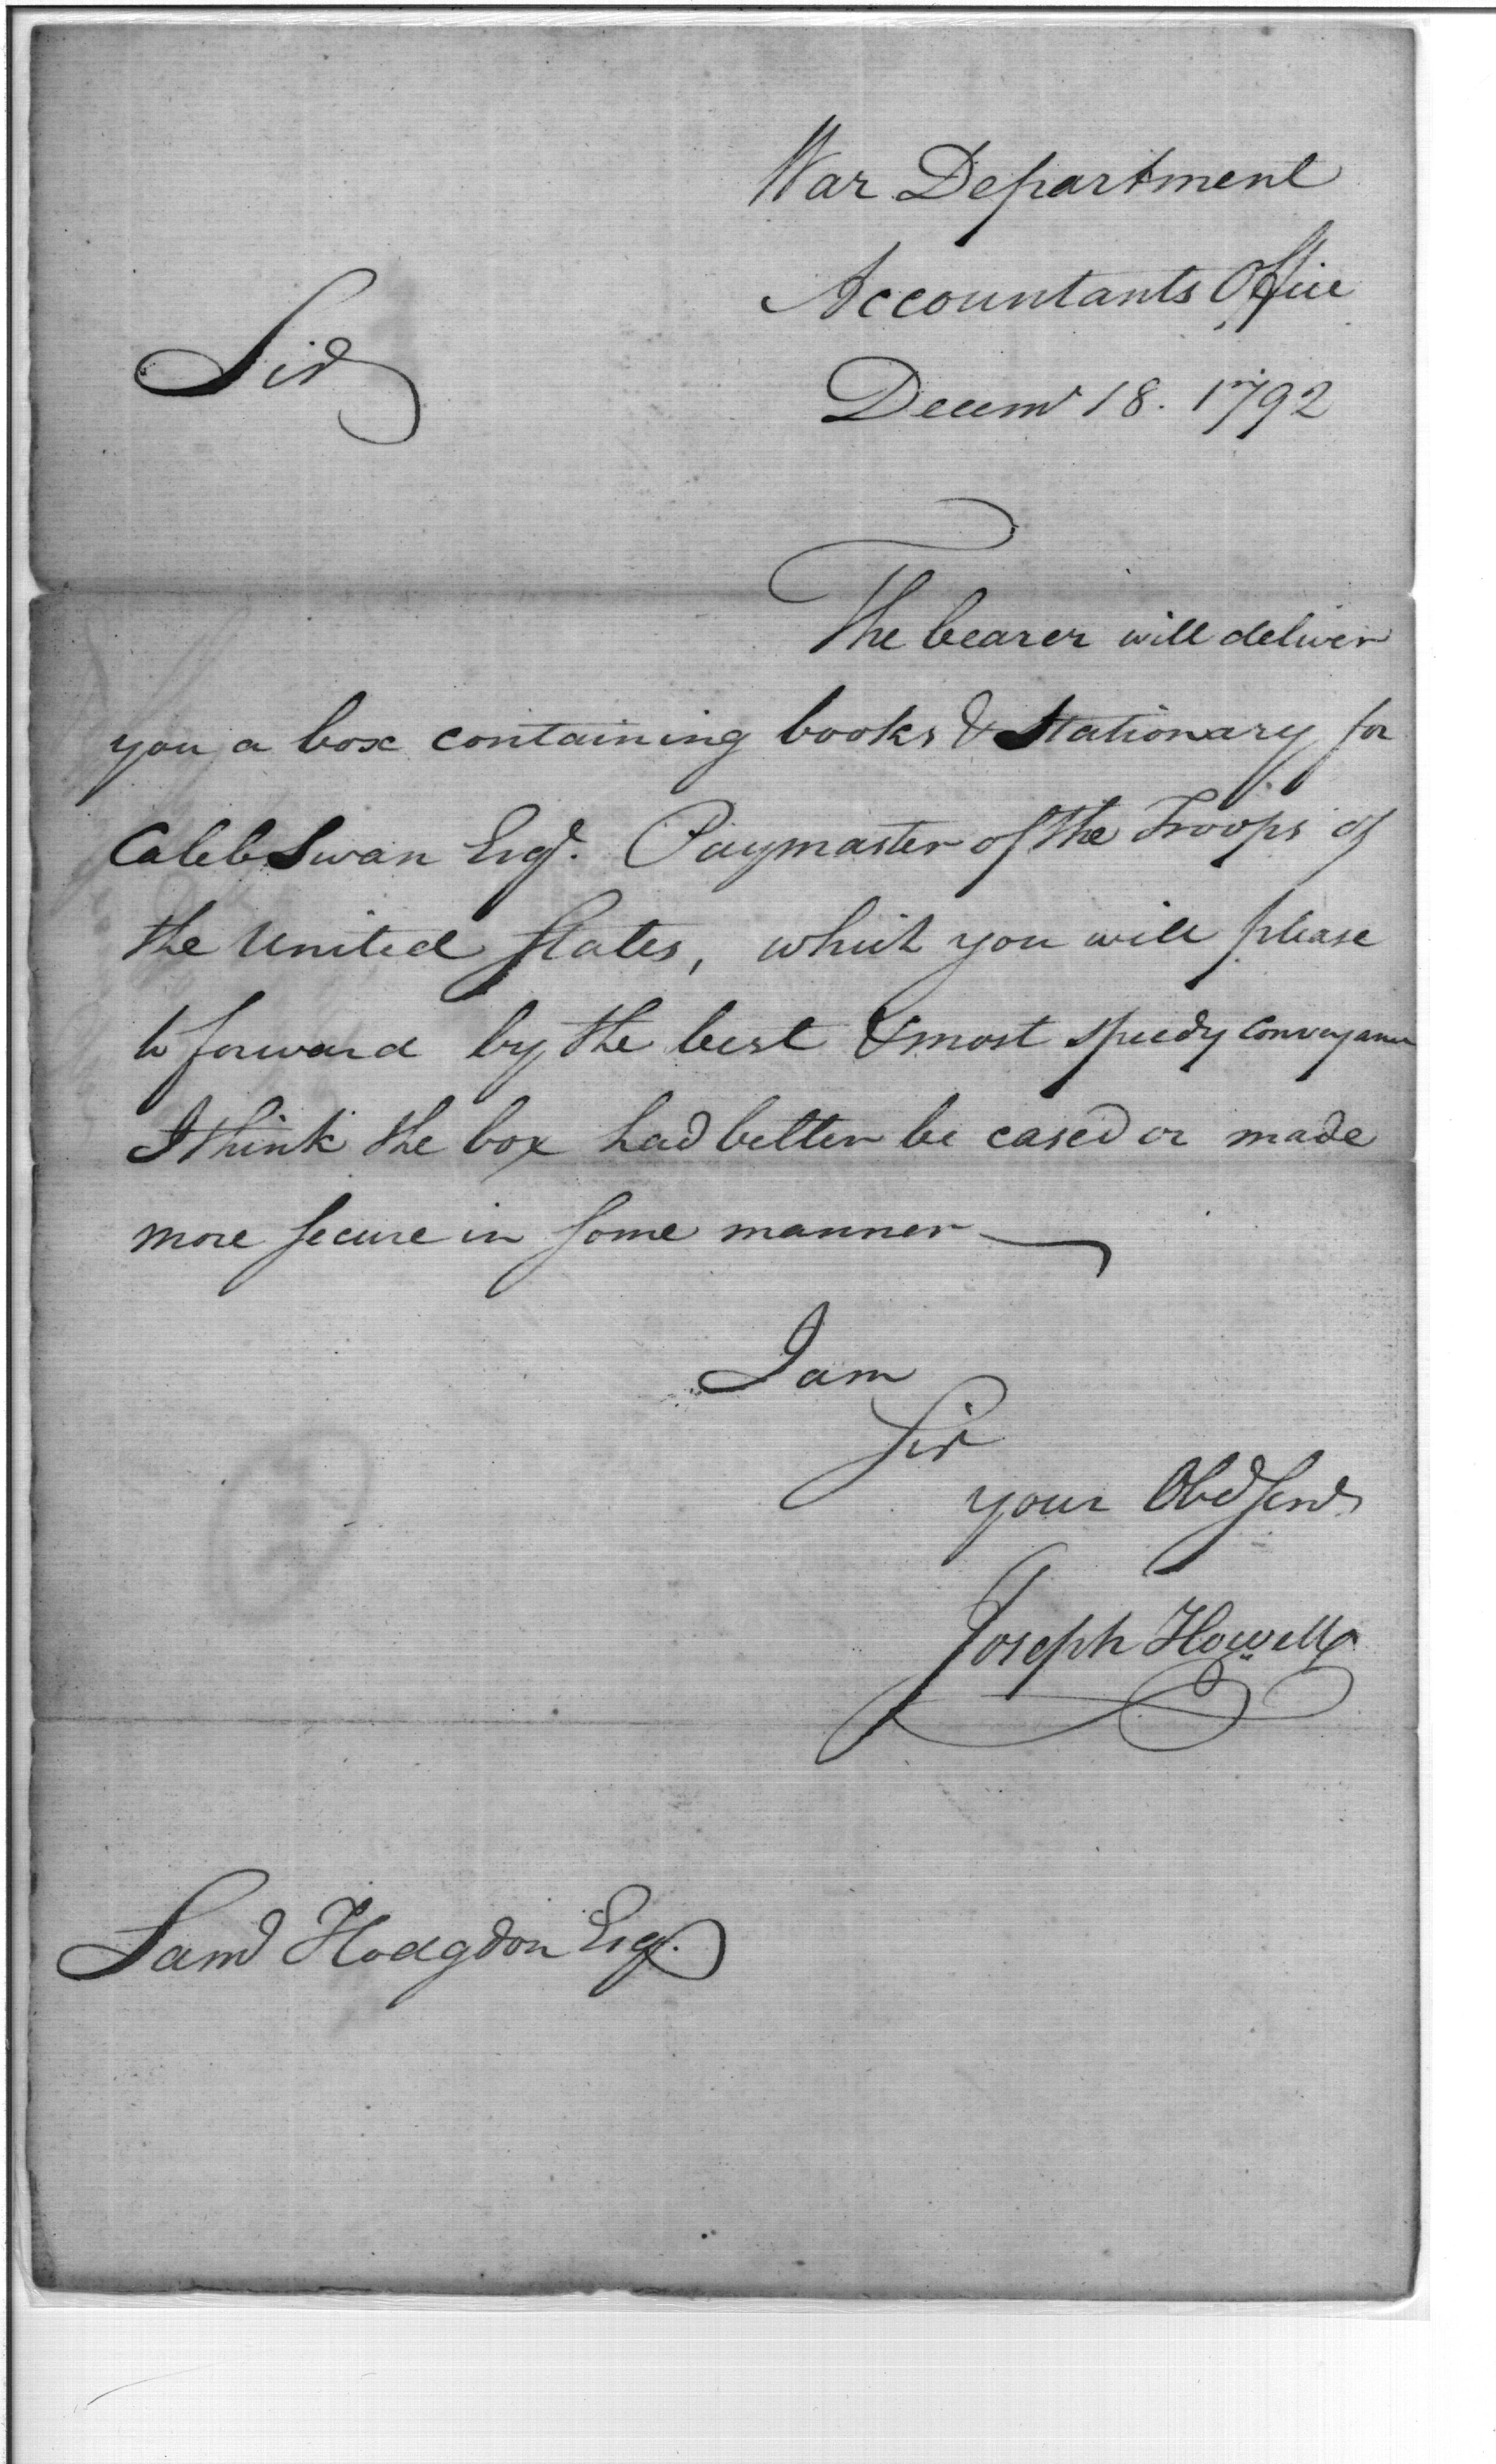 War Department
Accountants Office
Sir
Decemr 18. 1792
The bearer will deliver
you a box containing books & Stationary for
Caleb Swan Esqr. Paymaster of the Troops of
the United States, which you will please
to forward by the best & most speedy conveyance
I think the box had better be cased or made
more secure in some manner —
I am
Sir
your Obd Servt
Joseph Howell
Saml Hodgdon Esqr.